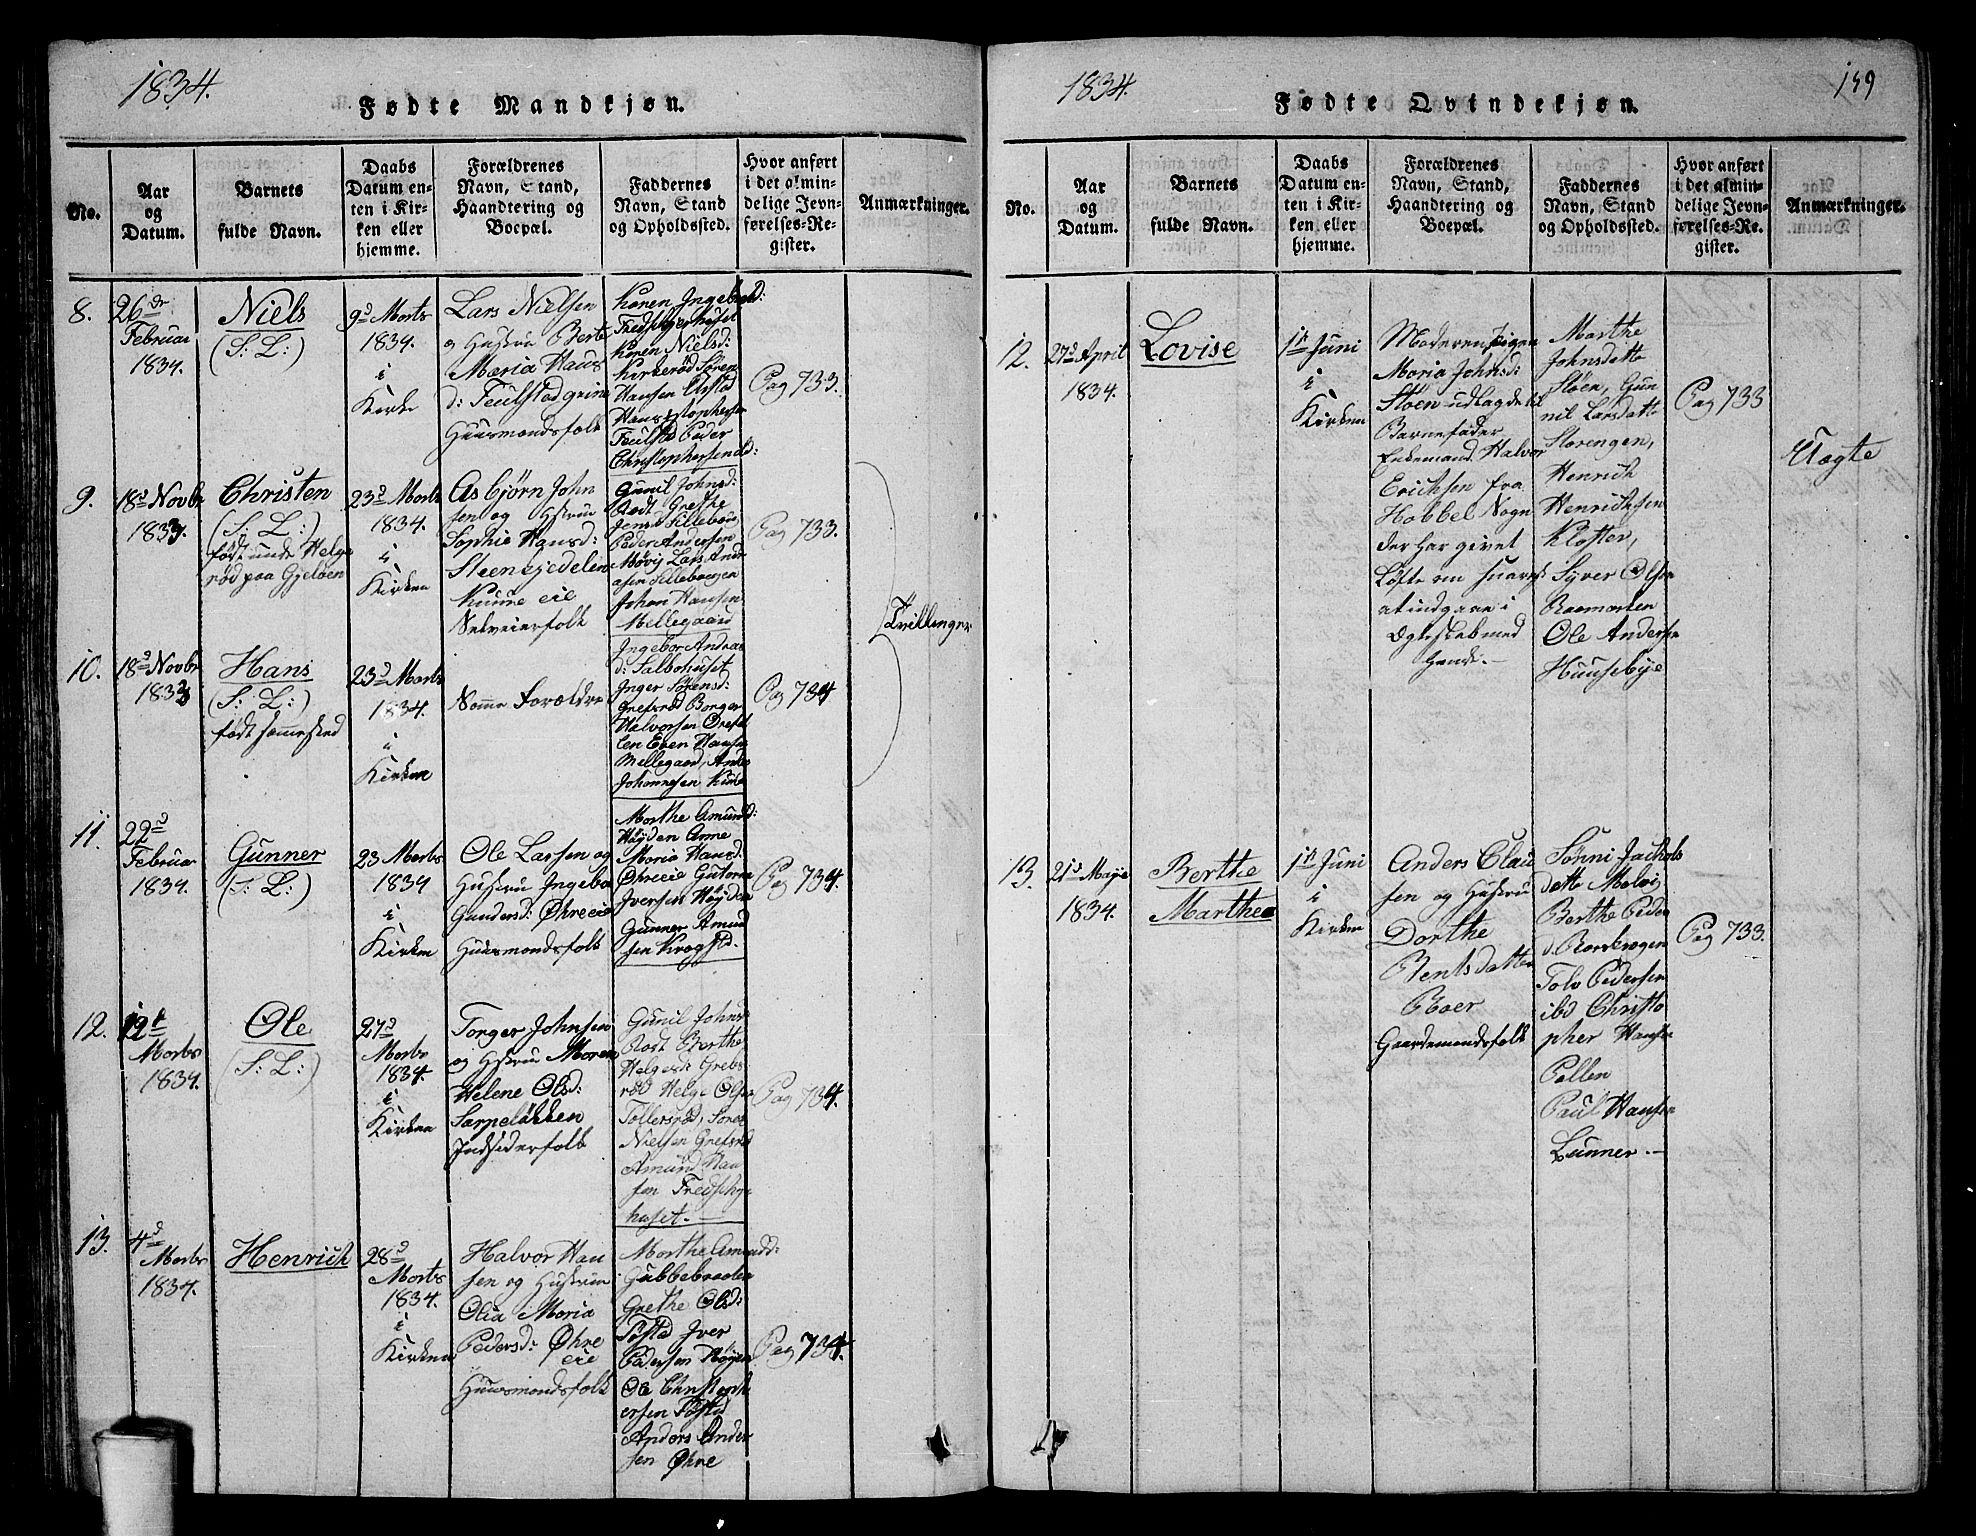 1834.
Fødte Mandkjøn.
No.
Aar
og
Datum.
Barnets
fulde Navn.
Daabs
Datum en-
ten i Kir-
ken eller
hjemme.
Forældrenes
Navn, Stand,
Haandtering og
Boepæl.
Faddernes
Navn, Stand
og Opholdssted.
Hvor anført
i det almin-
delige Jevn-
førelses-Re-
gister.
Anmærkninger.
8.
26de
Februar
1834.
Niels
(S: L:)
9d Marts
1834.
i
Kirke
Lars Nielsen
og Hustru Berte
Maria Hans
d:
Huusmandsfolk
Karen Ingebr d:
Karen Nielsd:
Kirkerød Søren
Hansen
Hans
Peder
Christophersen
Pag 733.
9.
18d Novbr
1833
Christen
(S: L:)
født under Helge
rød paa Gjeløen
23d Marts
1834.
i
Kirken
Asbjørn John
sen og Hustru
Sophie Hansd:
Selveierfolk
Gunil Johnsd:
Rødt Grethe
Jensd Sillebøu
Peder Andersen
Lars And
Johan Hansen
Mellegaard
Pag 733.
Tvillinger
10.
18d Novbr
1833
Hans
(S: L:)
født sammested
23d Marts
1834.
i
Kirken
Samme Forældre
Ingebor Andreas
d:
Inger Sørensd:
Grefsrød Borger
Halvorsen
Even Hansen
Mellegaard, Anders
Johannesen
Pag 734
11.
22d
Februar
1834.
Gunner
(S: L:)
23 Marts
1834
i
Kirken
Ole Larsen og
Hustru Ingebor
Gundersd: Øhreeie
Huusmandsfolk
Marthe Amund d:
Høyden Anne
Maria Hansd:
Øhreeie Gutorm
Iversen Høyden
Gunner Amund
sen Kragstd.
Pag 734.
12.
12t
Marts
1834.
Ole
(S: L:)
27d
Marts
1834.
i
Kirken
Torger Johnsen
og Hustru Maren
Helene Olsd:
Sarpeløkken
Indsiderfolk
Gunil Johns
Rødt Berthe
Helgesd: Grebs
rød Helge Olsen
Tollersrød, Søren
Nielsen Grefsrød
Amund Han
sen Fredskjær
huset.
Pag 734.
13.
4d
Marts
1834.
Henrich
28d
Marts
1834.
i
Kirken
Halvor Han
sen og Hustrue
Olia Maria
Pedersd: Øhre
eie
Huusmandsfolk
Marthe Amund d:
Gubbebraaten
Grethe Olsd:
Tøstd Iver
Pedersen Høyen
Ole Christoph
ersen Tøstd
Anders Ander
sen Øhre
Pag 734.
1834.
149
Fødte Qvindekjøn.
No.
Aar
og
Datum.
Barnets
fulde Navn.
Daabs
Datum en-
ten i Kir-
ken eller
hjemme.
Forældrenes
Navn, Stand,
Haandtering og
Boepæl.
Faddernes
Navn, Stand
og Opholdssted.
Hvor anført
i det almin-
delige Jevn-
førelses-Re-
gister.
Anmærkninger.
12.
27d April
1834.
Lovise
1ste Juni
i
Kirken
Moderen Pigen
Maria Johnsd:
Støen udlagde til
Barnefader
Enkemand Halvor
Erichsen fra
Hobbel Sogn
der har givet
Løfte om snarest
at indgaae i
Ægteskab med
hende.
Marthe
Johnsdatte
Støen, Gun
nil Larsdatte
Storengen,
Henrich
Henrichsen
Kloster,
Syver Olsen
Ole Andersen
Huusebye
Pag 733
Uægte
13.
21d Maye
1834.
Berthe
Marthea
1ste Juni
i
Kirken
Anders Clau
sen og Hustru
Dorthe
Bentsdatter
Boer
Gaardmandsfolk
datte Molvig
Berthe Peder
d: Roerkrogen
Tolv Pedersen
ibd Christo
pher Hansen
Pallen
Paul Hansen
Lunner.
Pag 733.